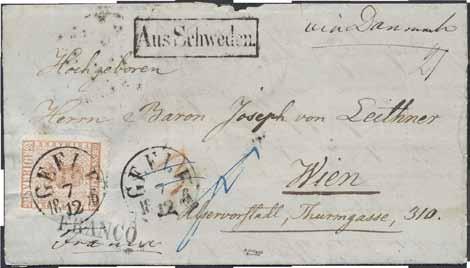 Aus Schweden.
via Danmark
Hochgeboren
Herrn Baron Joseph von Leithner
Wien
Alservorstadt, Thurmgasse, 310.
GEFLE
7
12
GEFLE
7
12
FRANCO